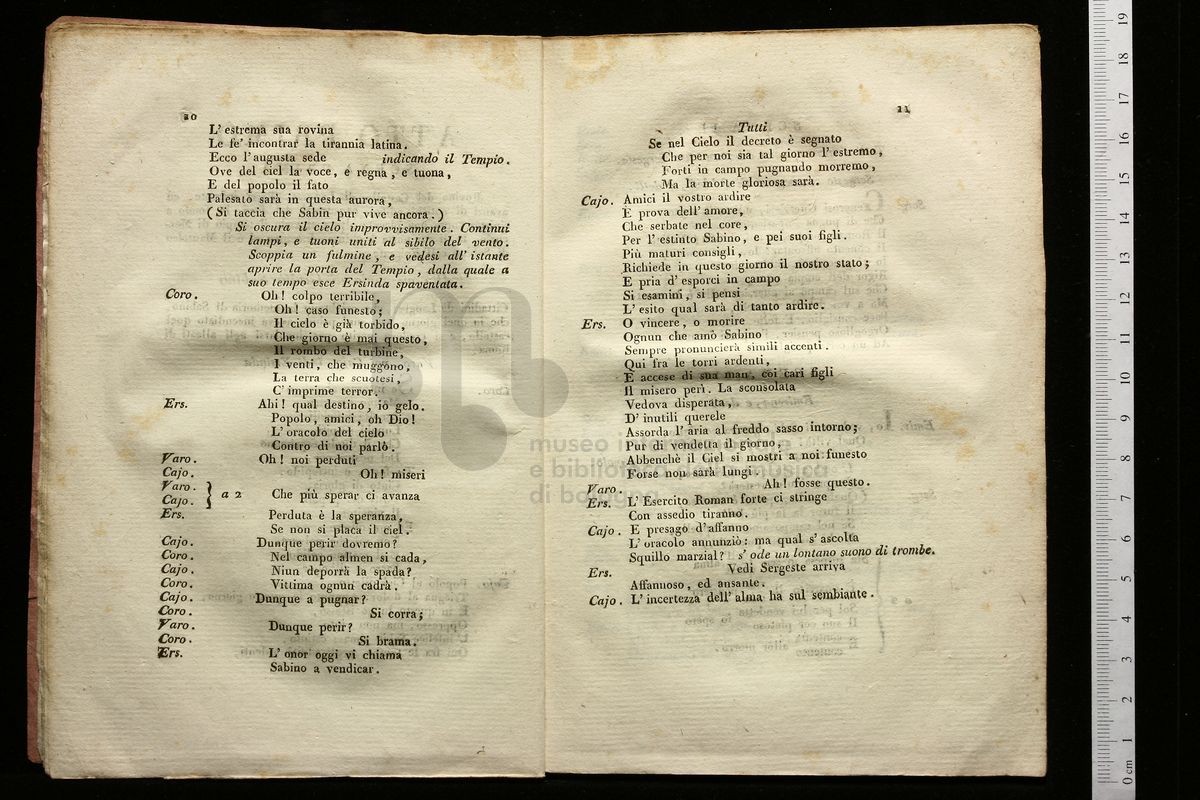 10
L' estrema sua rovina
Le fe' incontrar la tirannia latina.
Ecco l' augusta sede indicando il Tempio.
Ove del ciel la voce, e regna, e tuona,
E del popolo il fato
Palesato sarà in questa aurora,
( Si taccia che Sabin pur vive ancora. )
Si oscura il cielo improvvisamente. Continui
lampi, e tuoni uniti al sibilo del vento.
Scoppia un fulmine, e vedesi all' istante
aprire la porta del Tempio, dalla quale a
suo tempo esce Ersinda spaventata.
Coro. Oh! colpo terribile,
Oh! caso funesto;
Il cielo è già torbido,
Che giorno è mai questo,
Il rombo del turbine,
I venti, che muggono,
La terra che scuotesi,
C' imprime terror.
Ers. Ahi! qual destino, io gelo.
Popolo, amici, oh Dio!
L' oracolo del cielo
Contro di noi parlò.
Varo. Oh! noi perduti
Cajo. Oh! miseri
Varo. } a 2 Che più sperar ci avanza
Cajo.
Ers. Perduta è la speranza,
Se non si placa il ciel.
Cajo. Dunque perir dovremo?
Coro. Nel campo almen si cada,
Cajo. Niun deporrà la spada?
Coro. Vittima ognun cadrà.
Cajo. Dunque a pugnar?
Coro. Si corra;
Varo. Dunque perir?
Coro. Si brama.
Ers. L' onor oggi vi chiama
Sabino a vendicar.
11
Tutti
Se nel Cielo il decreto è segnato
Che per noi sia tal giorno l' estremo,
Forti in campo pugnando morremo,
Ma la morte gloriosa sarà.
Cajo. Amici il vostro ardire
E prova dell' amore,
Che serbate nel core,
Per l' estinto Sabino, e pei suoi figli.
Più maturi consigli,
Richiede in questo giorno il nostro stato;
E pria d' esporci in campo
Si esamini, si pensi
L' esito qual sarà di tanto ardire.
Ers. O vincere, o morire
Ognun che amò Sabino
Sempre pronuncierà simili accenti.
Qui fra le torri ardenti,
E accese di sua man, coi cari figli
Il misero perì. La sconsolata
Vedova disperata,
D' inutili querele
Assorda l' aria al freddo sasso intorno;
Pur di vendetta il giorno,
Abbenchè il Ciel si mostri a noi funesto
Forse non sarà lungi.
Varo. Ah! fosse questo.
Ers. L' Esercito Roman forte ci stringe
Con assedio tiranno.
Cajo. E presago d' affanno
L' oracolo annunziò: ma qual s' ascolta
Squillo marzial? s' ode un lontano suono di trombe.
Ers. Vedi Sergeste arriva
Affannoso, ed ansante.
Cajo. L' incertezza dell' alma ha sul sembiante.
museo
e biblioteca della musica
di bologna
0 cm 1 2 3 4 5 6 7 8 9 10 11 12 13 14 15 16 17 18 19